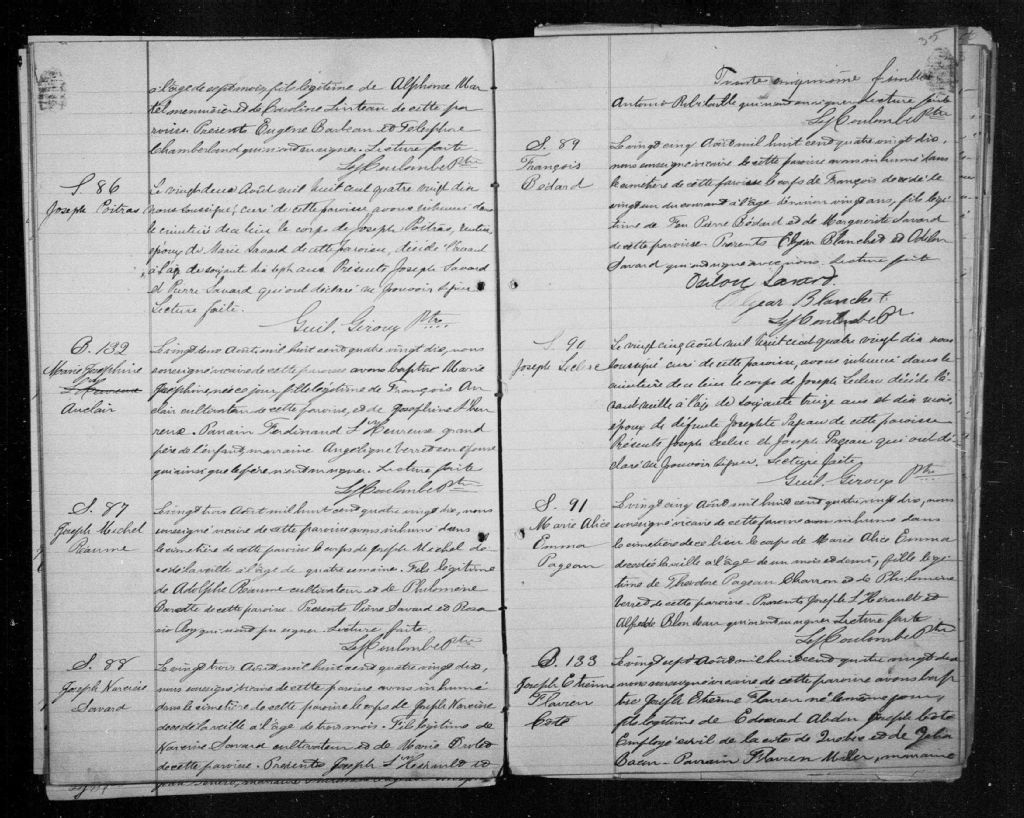 à l'âge de sept mois, fils légitime de Alphonse Mar
tel menuisier et de Caroline Linteau de cette pa
roisse. Présents Eugène Barbeau et Télesphore
Chamberland qui n'ont su signer. Lecture faite
Ls J Coulombe Ptre
S. 86
Joseph Poitras
Le vingt deux Août mil huit cent quatre vingt dix
nous soussigné, curé de cette paroisse, avons inhumé dans
le cimetière de ce lieu le corps de Joseph Poitras, rentier,
époux de Marie Savard de cette paroisse, décédé l'avant
à l'âge de soixante dix sept ans Présents Joseph Savard
et Pierre Savard qui ont déclaré ne pouvoir signer
Lecture faite.
Guil. Giroux Ptre
B. 132
Marie Joséphine
Auclair
Le vingt deux Août mil huit cent quatre vingt dix, nous
soussigné vicaire de cette paroisse avons baptisé Marie
Joséphine née ce jour, fille légitime de François Au
clair cultivateur de cette paroisse, et de Joséphine L'Heu
reux. Parrain Ferdinand L'Heureux grand
père de l'enfant, marraine Angélique Verret son épouse
qui ainsi que le père n'ont su signer. Lecture faite
Ls J Coulombe Ptre
S. 87
Joseph Michel
Réaume
Le vingt trois Août mil huit cent quatre vingt dix, nous
soussigné vicaire de cette paroisse avons inhumé dans
le cimetière de cette paroisse le corps de Joseph Michel dé
cédé la veille à l'âge de quatre semaine. Fils légitime
de Adolphe Réaume cultivateur et de Philomène
de cette paroisse. Présents Pierre Savard et Rosa
rio Roy qui n'ont pu signer. Lecture faite.
Ls J Coulombe Ptre
S. 88
Joseph Narcisse
Savard
Le vingt trois Août mil huit cent quatre vingt dix,
nous soussigné vicaire de cette paroisse avons inhumé
dans le cimetière de cette paroisse le corps de Joseph Narcisse
décédé la veille à l'âge de trois mois. Fils légitime de
Narcisse Savard cultivateur et de Marie
de cette paroisse. Présents Joseph L'Hérault et
35
Trente cinquième feuillet
Antonio Robitaille qui n'ont su signer Lecture faite
Ls J Coulombe Ptre
S. 89
François
Bédard
Le vingt cinq Août mil huit cent quatre vingt dix,
nous soussigné vicaire de cette paroisse avons inhumé dans
le cimetière de cette paroisse le corps de François décédé le
vingt un du courant à l'âge de vingt ans, fils légi
time de Feu Pierre Bédard et de Marguerite Savard
de cette paroisse. Présents Elzéar Blanchet et Odilon
Savard qui ont signé avec nous. Lecture faite
Odilon Savard.
Elzear Blanchet
Ls J Coulombe Ptr
S. 90
Joseph Leclerc
Le vingt cinq Août mil huit cent quatre vingt dix nous
soussigné curé de cette paroisse, avons inhumé dans le
cimetière de ce lieu le corps de Joseph Leclerc décédé l'a
vant veille à l'âge de soixante treize ans et dix mois,
époux de défunte Josephte Pageau de cette paroisse
Présents Joseph Leclerc et Joseph Pageau qui ont dé
claré ne pouvoir signer. Lecture faite.
Guil. Giroux Ptre
S. 91
Marie Alice
Emma
Pageau
Le vingt cinq Août mil huit cent quatre vingt dix, nous
soussigné vicaire de cette paroisse avons inhumé dans
le cimetière de ce lieu le corps de Marie Alice Emma
décédée la veille à l'âge de un mois et demi, fille légi
time de Théodore Pageau Charron et de Philomène
Verret de cette paroisse. Présents Joseph L'Hérault et
Alfred Blondeau qui n'ont su signer Lecture faite
Ls J Coulombe Ptre
B. 133
Joseph Etienne
Flavien
Coté
Le vingt sept Août mil huit cent quatre vingt dix
nous soussigné vicaire de cette paroisse avons bap
tisé Joseph Etienne Flavien né le même jour,
fils légitime de Edouard Joseph Coté
Employé civil de la cité de Québec et de
Bacon. Parrain Flavien Miller, marraine